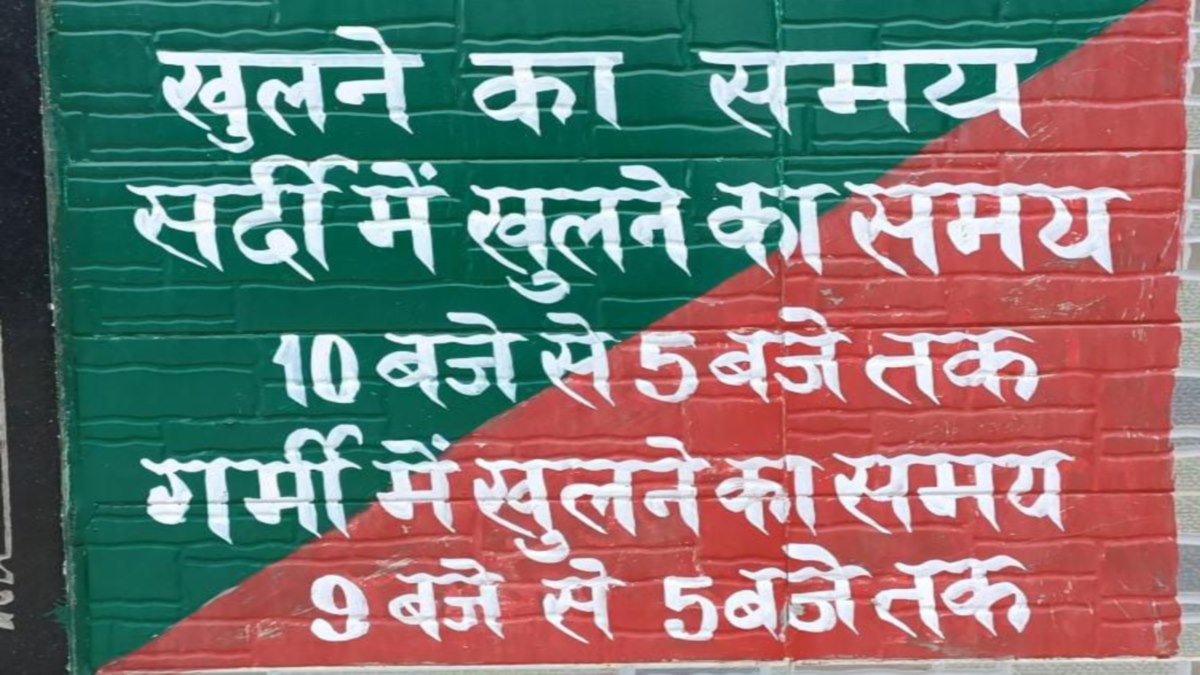 खुलने का समय
सर्दी में खुलने का समय
10 बजे से 5 बजे तक
गर्मी में खुलने का समय
9 बजे से 5 बजे तक